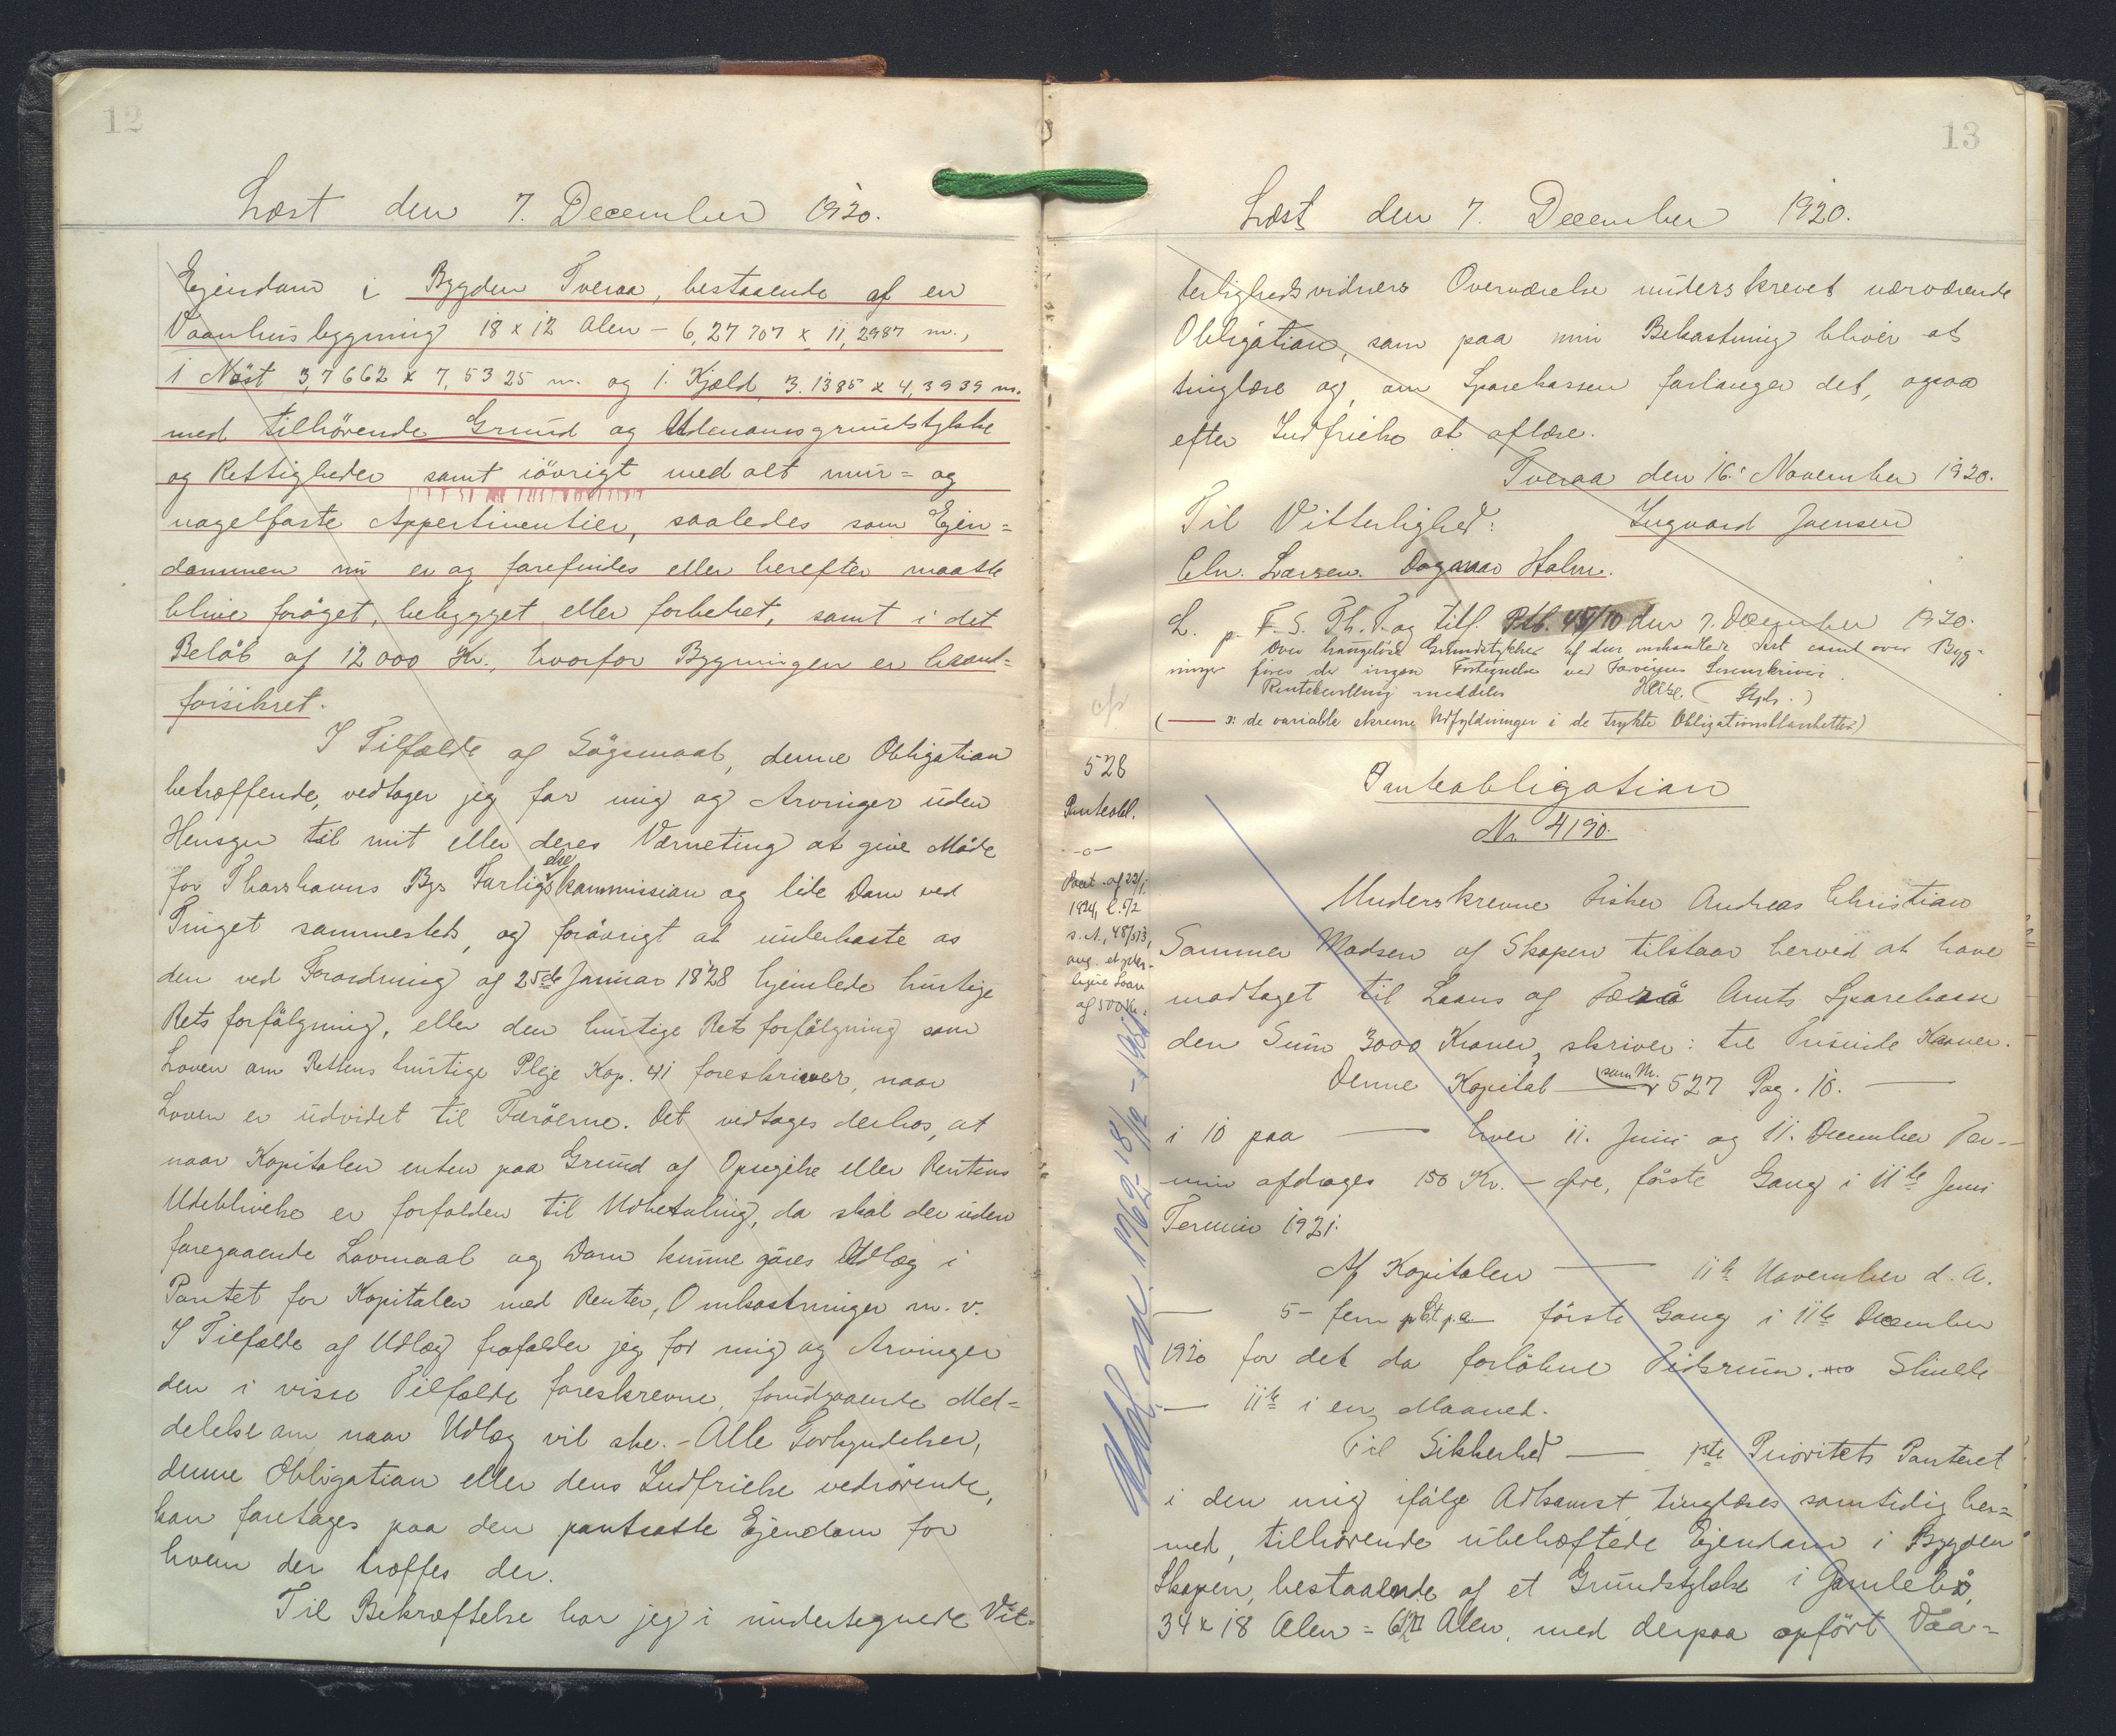 12
Læst den 7. December 1920.
Ejendom i Bygden Tveraa, bestaaende af en
Vaanhusbygning 18 x 12 Alen - 6,27707 x 11,2987 m.,
1 Nöst 3,7662 x 7,5325 m. og 1. Kjæld, 3.1385 x 4,3939 m.
med tilhörende Grund og Udenomsgrundstykke
og Rettigheder samt iövrigt med alt mur= og
nagelfaste Appertinentier, saaledes som Ejen=
dommen nu er og forefindes eller herefter maatte
blive foröget, bebygget eller forbedret, samt i det
Beløb af 12000 Kr., hvorfor Bygningen er brand=
forsikret.
I Tilfælde af Sögsmaal, denne Obligation
betræffende, vedtager jeg for mig og Arvinger uden
Hensyn til mit eller deres Værneting at give Möde
for Thorshavns Bys Forligelseskommission og lide Dom ved
Tinget sammesteds, og forövrigt at underkaste os
den ved Forordning af 25de Januar 1828 hjemlede hurtige
Retsforfölgning, eller den hurtige Retsforfölgning som
Loven om Rettens hurtige Pleje Kap. 41 foreskriver, naar
Loven er udvidet til Færöerne. Det vedtages derhos, at
naar Kapitalen enten paa Grund af Opsigelse eller Rentens
Udeblivelse er forfalden til Udbetaling, da skal der uden
foregaaende Lovmaal og Dom kunne göres Udlæg i
Pantet for Kapitalen med Renter, Omkostninger m. v.
I Tilfælde af Udlæg frafalder jeg for mig og Arvinger
den i visse Tilfælde foreskrevne, forudgaaende Med=
delelse om naar Udlæg vil ske. - Alle Forkyndelser,
denne Obligation eller dens Indfrielse vedrörende,
kan foretages paa den pantsatte Ejendom for
hvem der træffes der.
Til Bekræftelse har jeg i undertegnede Vit=
13
Læst den 7. December 1920.
terlighedsvidners Overværelse underskrevet nærværende
Obligation, som paa min Bekostning bliver at
tinglæse og, om Sparekassen forlanger det, ogsaa
efter Indfrielse at aflæse.
Tveraa den 16. November 1920.
Til Vitterlighed: Ingvard Joensen
Chr. Larsen. Dagmar Holm.
L. p. F. S. Th. T. og tilf. Ptb. 45/10 den 7. December 1920.
Over haugelöse Grundstykker af den omhandlede Art samt over Byg=
ninger föres der ingen Fortegnelse ved Færöernes Sorenskriveri.
Rentehenvisning meddeles Heise. ( Stpls. )
( — ɔ: de variable skrevne Udfyldninger i de trykte Obligationsblanketter)
528
Panteobl.
-o-
Paat. af 22/1.
1924, l. 5/2
s. A., 48/513,
ang. et yder-
ligere Laan
af 500 Kr.
Panteobligation
Nr. 4190.
Underskrevne Fisker Andreas Christian
Sammer Madsen af Skopen tilstaar herved at have
modtaget til Laans af Færö Amts Sparekasse
den Sum 3000 Kroner, skriver: tre Tusinde Kroner.
Denne Kapital — som Nr. 527 Pag. 10. —
i 10 paa — hver 11. Juni og 11. December Ter-
min afdrages 150 Kr. - Øre, förste Gang i 11te Juni
Termin 1921.
Af Kapitalen — 11te November d. A.
— 5 - fem pCt p.a förste Gang i 11te December
1920 for det da forlöbne Tidsrum. Skulle
— 11te i en Maaned.
Til Sikkerhed — 1ste Prioritets Panteret
i den mig ifölge Adkomst, tinglæses samtidig her=
med, tilhörende ubehæftede Ejendom i Bygden
Skopen, bestaaende af et Grundstykke i Gamlebö,
34 x 18 Alen = 612 □ Alen, med derpaa opfört Vaa=